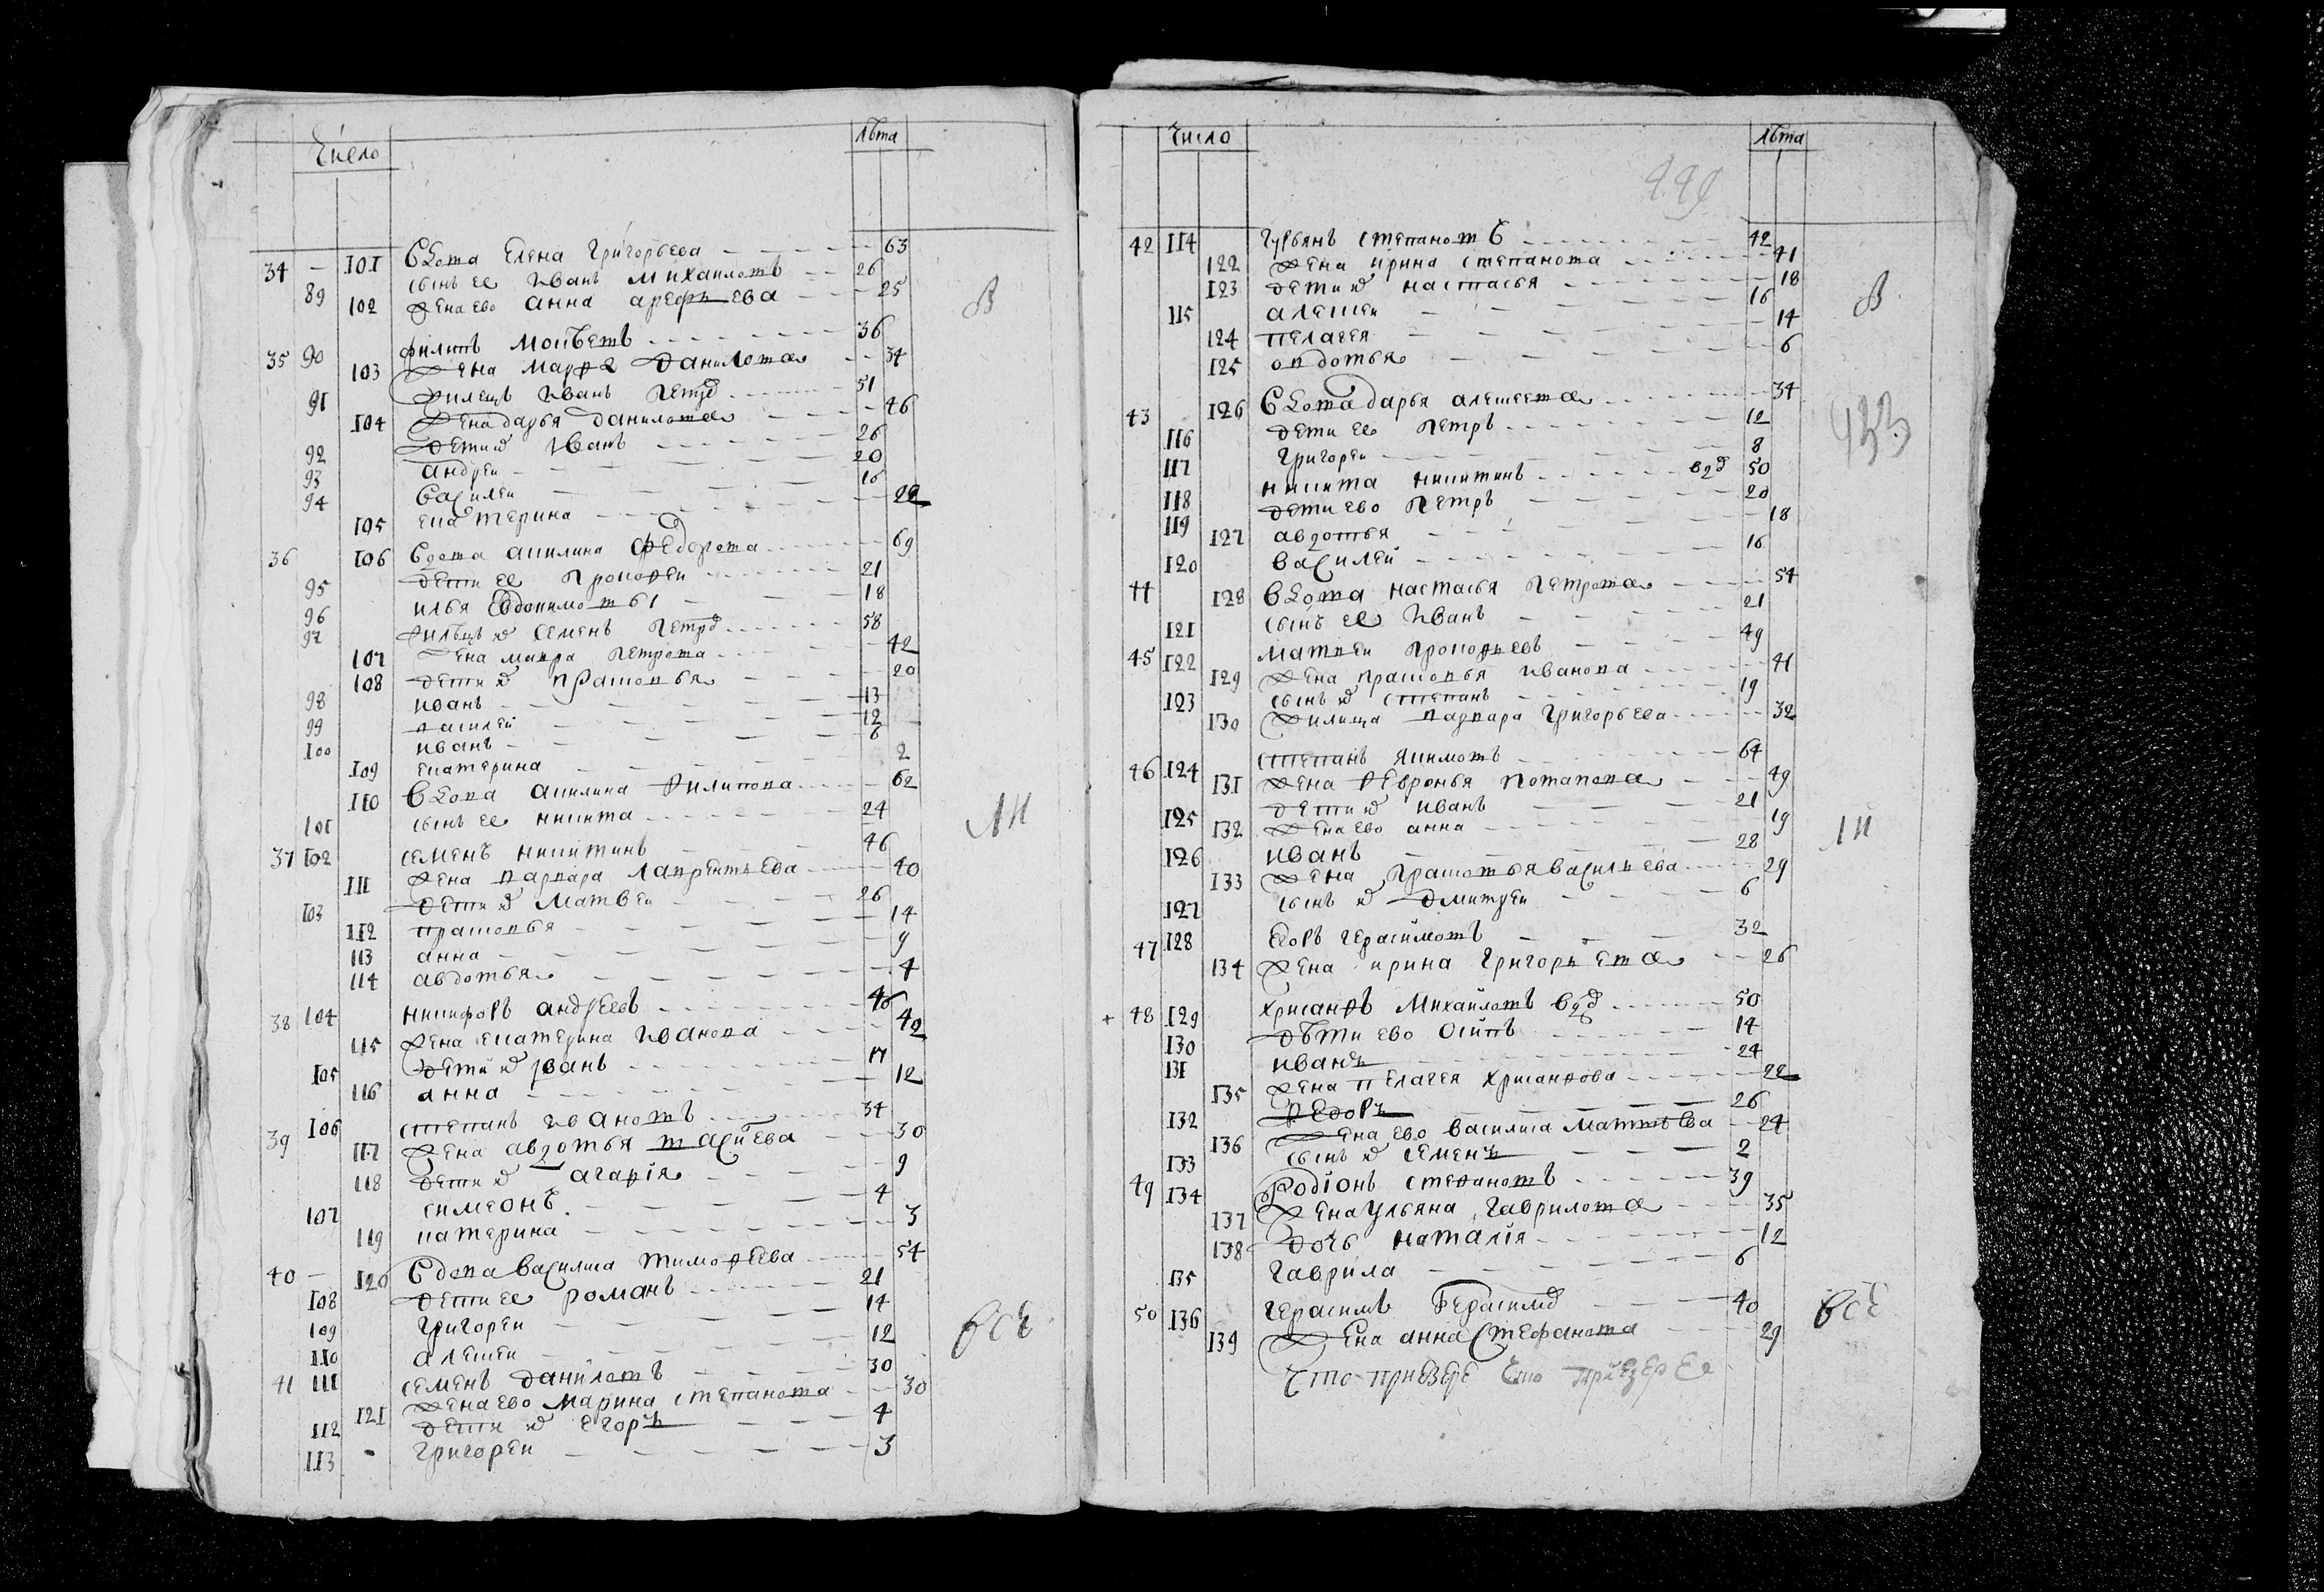 Число лѣта
34 – 101 Вдова Елена Григорьева 63
89 сынъ ее Иванъ Михаиловъ 26
102 жена ево анна арефьева 25
35 90 филипъ Моисѣевъ 36
103 жена марфа данилова 34
91 жилецъ Иванъ Петр 51
104 жена дарья данилова 46
92 дети их Иванъ 26
93 андреи 20
94 Василеи 16
105 екатерина 22
36 106 Вдова акилина федорова 69
95 дети ее Прокофеи 21
96 илья Евдокимовы 18
97 жилецъ же семенъ Петр 58
107 жена мавра Петрова 42
108 дети их прасковья 20
98 иванъ 13
99 василей 12
100 иванъ 6
109 екатерина 2
110 Вдова акилина филипова 62
101 сынъ ее никита 24
37 102 семенъ никитинъ 46
111 жена варвара лаврентьева 40
103 дети их матвеи 26
112 прасковья 14
113 анна 9
114 авдотья 4
38 104 никифоръ андреевъ 46
115 жена екатерина Иванова 42
105 дети их иванъ 17
116 анна 12
39 106 степанъ ивановъ 34
117 жена авдотья 30
118 дети их агафія 9
107 симеонъ 4
119 катерина 3
40 – 120 Вдова Василиса тимофеева 54
108 дети ее романъ 21
109 григореи 14
110 алексеи 12
41 111 семенъ даниловъ 30
121 жена ево марина степанова 30
112 дети их егоръ 4
113 григореи 3
В
ли
все
Число лѣта
449
42 114 гурьянъ степановъ 42
122 жена ирина степанова 41
123 дети их настасья 18
115 алексеи 16
124 пелагея 14
125 овдотья 6
43 126 Вдова дарья алексеева 34
116 дети ее Петръ 12
117 григореи 8
118 никита никитинъ вд 50
119 дети ево Петръ 20
127 авдотья 18
120 василей 16
44 128 Вдова настасья Петрова 54
121 сынъ ее Иванъ 21
45 122 матвеи Прокофьевъ 49
129 жена прасковья иванова 41
123 сынъ их степанъ 19
130 жилица варвара григорьева 32
46 124 степанъ якимовъ 64
131 жена февронья потапова 49
125 дети их иванъ 21
132 жена ево анна 19
126 иванъ 28
133 жена прасковья васильева 29
127 сынъ их дмитреи 6
47 128 егоръ герасимовъ 32
134 жена ирина григорьева 26
+ 48 129 хрисанфъ михаиловъ вд 50
130 дѣти ево осипъ 14
131 иванъ 24
135 жена пелагея хрисанфова 22
132 федоръ 26
136 жена ево василиса матвѣева 24
133 сынъ их семенъ 2
49 134 Родіонъ степановъ 39
137 жена ульяна гаврилова 35
138 дочь наталія 12
135 гаврила 6
50 136 герасимъ герасим 40
139 жена анна стефанова 29
В
433
ли
все